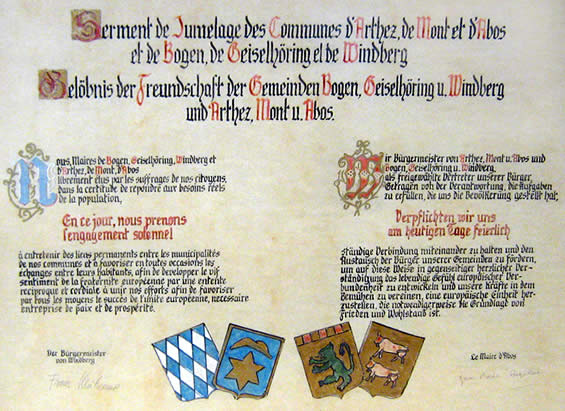 Serment de Jumelage des Communes d'Arthez, de Mont et d'Abos
et de Bogen, de Geiselhöring et de Windberg
Gelöbnis der Freundschaft der Gemeinden Bogen, Geiselhöring u. Windberg
und Arthez, Mont u. Abos.
Nous, Maires de Bogen, Geiselhöring, Windberg et
d'Arthez, de Mont, d'Abos
librement élus par les suffrages de nos citoyens,
dans la certitude de repondre aux besoins réels
de la population,
En ce jour, nous prenons
l'engagement solennel
à entretenir des liens permanents entre les municipalités
de nos communes et à favoriser en toutes occasions les
échanges entre leurs habitants, afin de developper le vif
sentiment de la fraternité européenne par une entente
réciproque et cordiale à unir nos efforts afin de favoriser
par tous les moyens le succès de l'unité européenne, necessaire
entreprise de paix et de prospérité.
Der Bürgermeister
von Windberg
Wir Bürgermeister von Arthez, Mont u. Abos und
Bogen, Geiselhöring u. Windberg,
als freigewählte Vertreter unserer Bürger,
Getragen von der Verantwortung, die Aufgaben
zu erfüllen, die uns die Bevölkerung gestellt hat,
Verpflichten wir uns
am heutigen Tage feierlich
ständige Verbindung miteinander zu halten und den
Austausch der Bürger unserer Gemeinden zu fördern,
um auf diese Weise in gegenseitiger herzlicher Ver-
ständigung das lebendige Gefühl europäischer Ver-
bundenheit zu entwickeln und unsere Kräfte in dem
Bemühen zu vereinen, eine europäische Einheit her-
zustellen, die notwendigerweise die Grundlage von
Frieden und Wohlstand ist.
Le Maire d'Abos